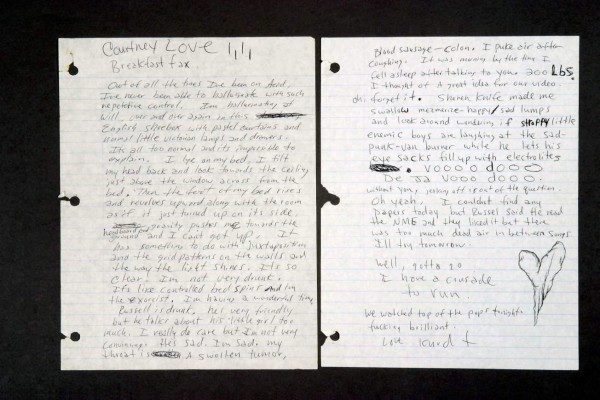 Courtney Love
Breakfast fax
Out of all the times I've been on
I've never been able to hallucinate with such
repetitive control. I'm hallucinating at
will. over and over again to this
English shoebox with pastel curtains and
normal little victorian lamps and drawers.
Its all too normal and its impossible to
explain. I lye on my bed, I tilt
my head back and look towards the ceiling
just above the window across from the
bed. Then the foot of my bed rises
and revolves upward along with the room
as if it just turned up on its side.
gravity pushes me towards the
headboard
ground and I cant get up. It
has something to do with Juxtaposition
and the grid patterns on the walls and
the way the light shines. Its so
clear. I'm not very drunk.
Its like controlled bed spins and
the exorcist. I'm having a wonderful time
Russell is drunk, hes very friendly
but he talks about his little girl too
much. I really do care but I'm not very
convincing. He's sad. I'm sad. my
throat is A swollen tumor,
Blood sausage - colon. I puke air after
coughing. It was morning by the time I
fell asleep after talking to you. 200 Lbs.
I thought of A great idea for our video.
oh forget it. Shonen knife made me
swallow memories happy/sad lumps
and look around wondering if snappy little
enemic boys are laughing at the sad-
punk-van burner while he lets his
eye sacks fill up with electrolites
voooodooo
De Ja Vooo dooo.
without you, jerking off is out of the question.
Oh yeah. I couldnt find any
papers today but Russel said He read
the NME and they liked it but there
was too much dead air in between songs
I'll try tomorrow.
Well, gotta go
I have a crusade
to run.
We watched top of the pops tonight
fucking brilliant.
Love Kurd